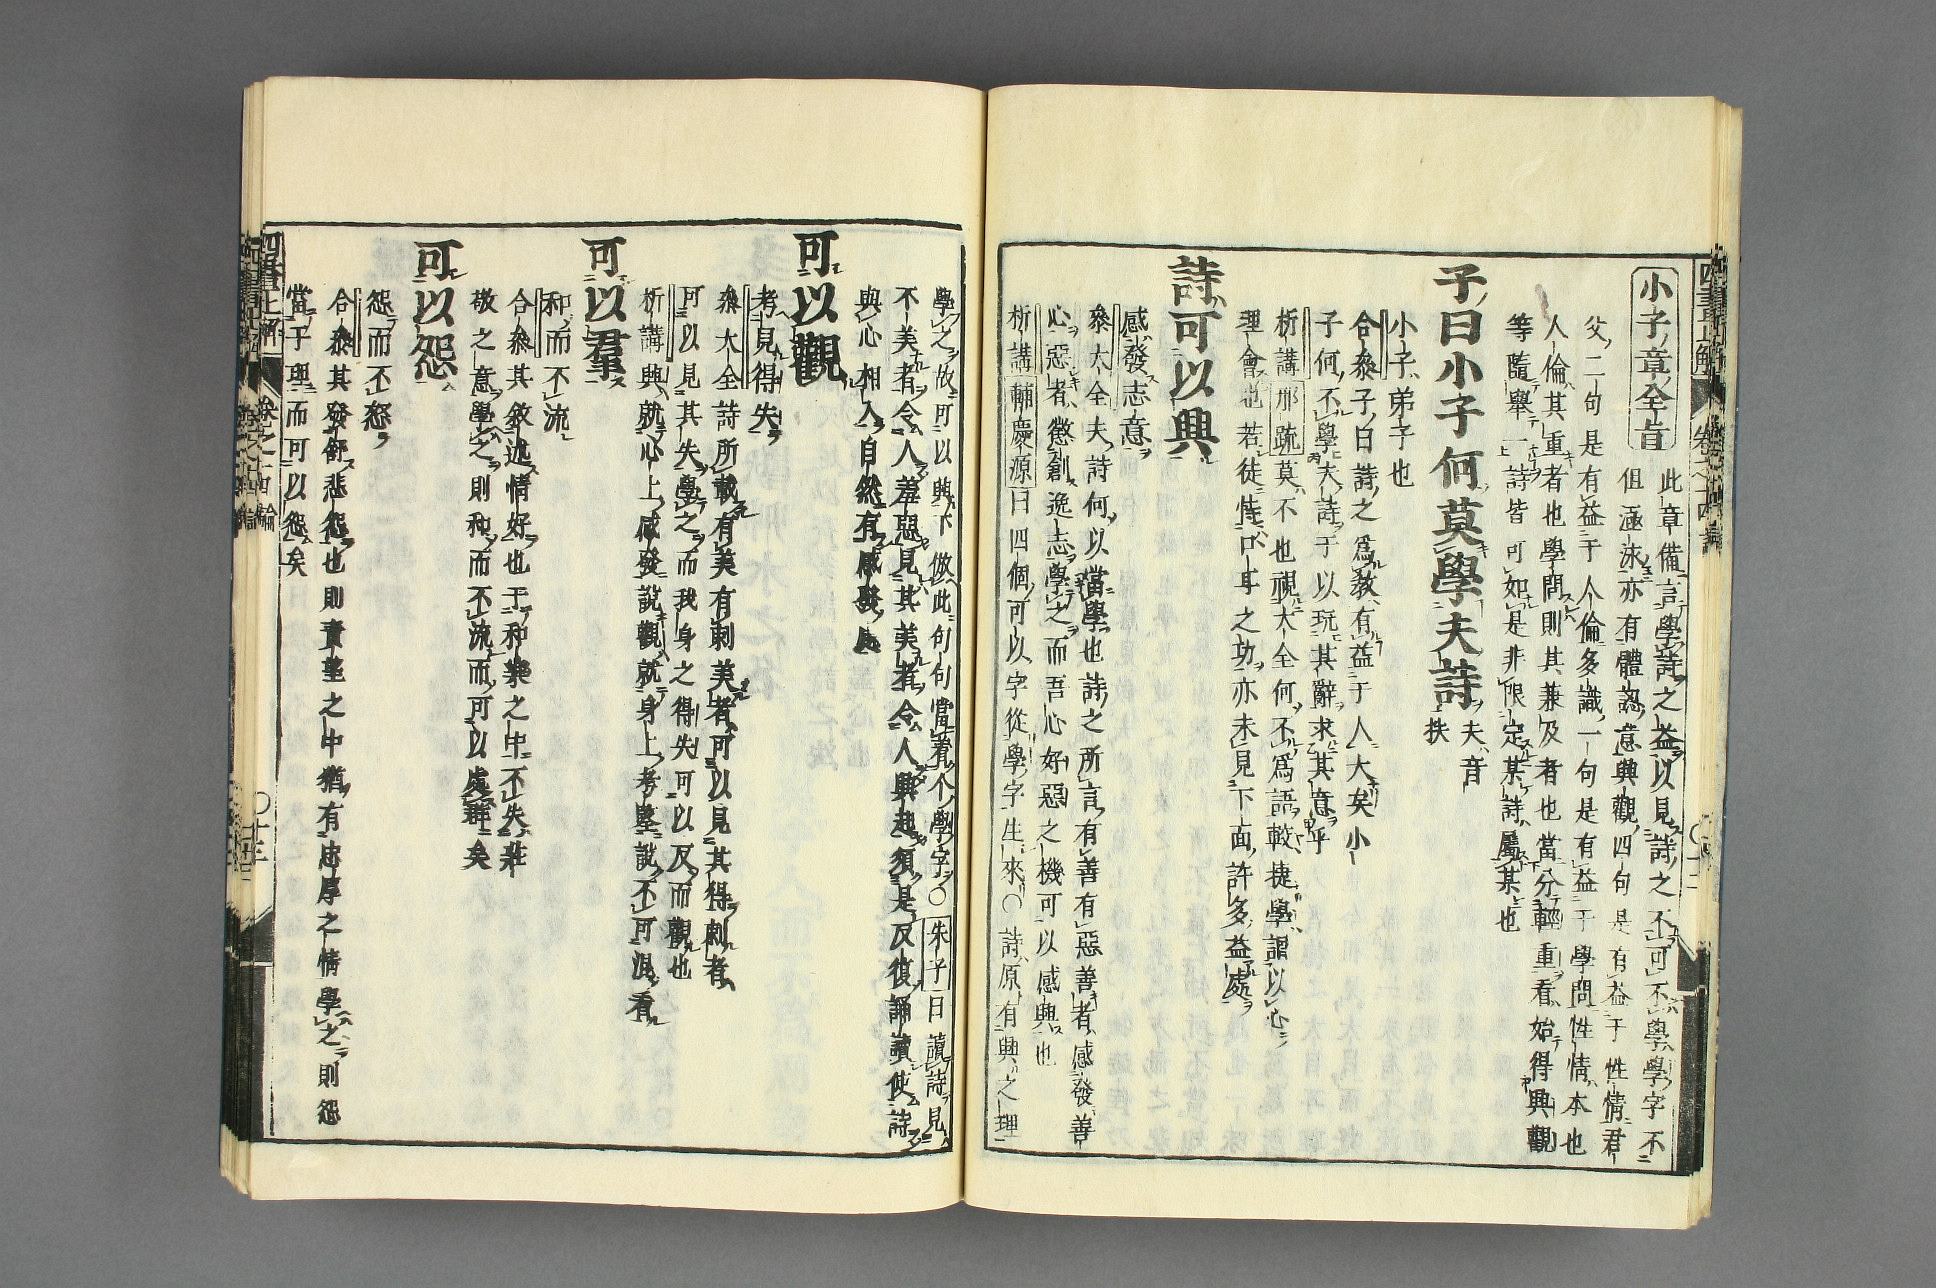 小子章全旨 此章備言學詩之益以見詩之不可不學學字不
但涵泳亦有體認意興觀四句是有益于性情君
父二句是有益于人倫多識一句是有益于學問性情本也
人倫其重者也學問則其兼及者也當分輕重看始得興觀
等隨舉一詩皆可如是非限定某詩屬某也
子曰小子何莫學夫詩 夫音扶
小子弟子也
合參子曰詩之為教有益于人大矣小
子何不學夫詩于以玩其辭求其意乎
析講 那疏莫不也視大全何不為語較捷學謂以心
理會也若徒恃口耳之功亦未見下面許多益處
詩可以興
感發志意
參大全夫詩何以當學也詩之所言有善有惡善者感發善
心惡者懲創逸志學之而吾心好惡之機可以感興也
析講 輔慶源曰四個可以字從學字生來○詩原有興之理
學之故可以興下倣此句句當着个學字○朱子曰讀詩見
不美者令人羞惡見其美者令人興起須是反復誦讀使詩
與心相入自然有感發處
可以觀
考見得失
參大全詩所載有美有刺美者可以見其得刺者
可以見其失學之而我身之得失可以反而觀也
析講興就心上感發說觀就身上考鑒說不可混看
可以羣
和而不流
合參其敘述情好也于和樂之中不失莊
敬之意學之則和而不流而可以處群矣
可以怨
怨而不怒
合參其發舒悲怨也則責望之中猶有忠厚之情學之則怨
當于理而可以怨矣
四書正解 卷之十四 論 〇十三